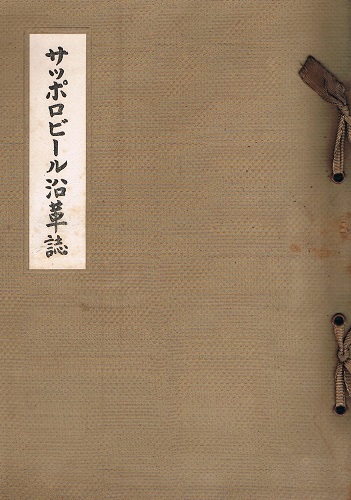 サッポロビール沿革誌